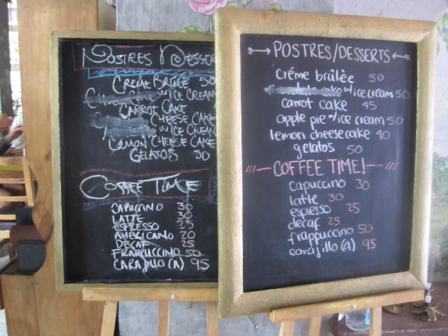 POSTRES DESSER
CREME BRULE 50
W/ICE CREAM
CARROT CAKE
CHEESE CAKE
W/ICE CREAM
LEMON CHEESECAKE
GELATOS 50
COFFEE TIME
CAPUCCINO 30
LATTE 30
ESPRESSO 25
AMERICANO 20
DECAF 25
FRAPPUCCINO 50
CARAJILLO (A) 95
POSTRES/DESSERTS
Créme brûlée 50
cake w/ice cream 50
carrot cake 45
apple pie w/ice cream 50
lemon cheesecake 40
gelatos 50
COFFEE TIME!
capuccino 30
latte 30
espresso 25
decaf 25
frappuccino 50
carajillo (a) 95